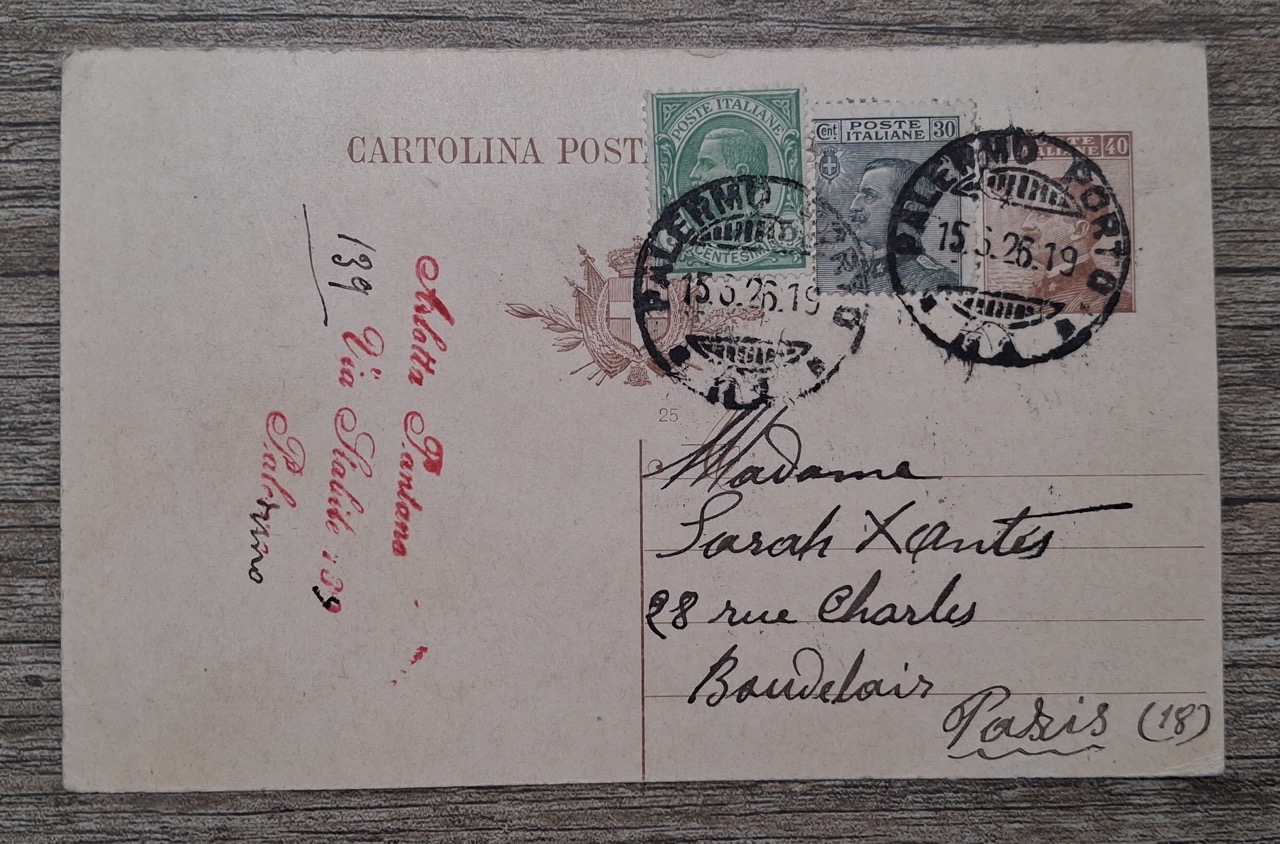 CARTOLINA POST
POSTE ITALIANE
5
CENTESIMI
Cent 30
POSTE
ITALIANE
40
PALERMO
15.6.26.19
PALERMO PORTO
15.6.26.19
25
139
Pantano
Via Stabile 139
Palermo
Madame
Sarah Xantès
28 rue Charles
Boudelair
Paris (18)